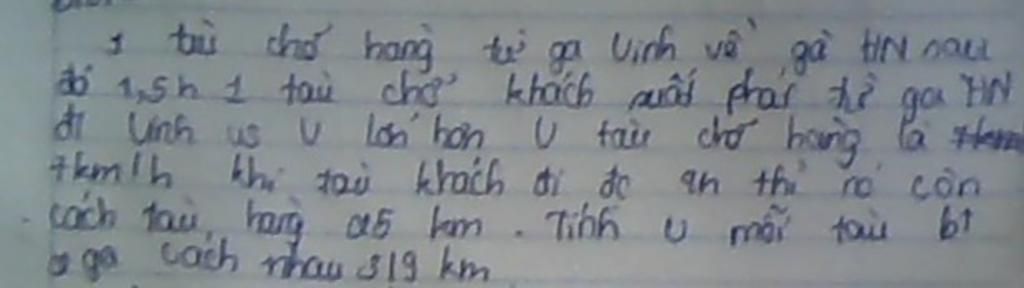 1 tàu chở hàng từ ga Vinh về ga HN sau
đó 1,5h 1 tàu chở khách xuất phát từ ga HN
đi Vinh vs v lớn hơn v tàu chở hàng là 7km
7km/h khi tàu khách đi đc 4h thì nó còn
cách tàu hàng 25 km. Tính v mỗi tàu bt
2 ga cách nhau 319 km